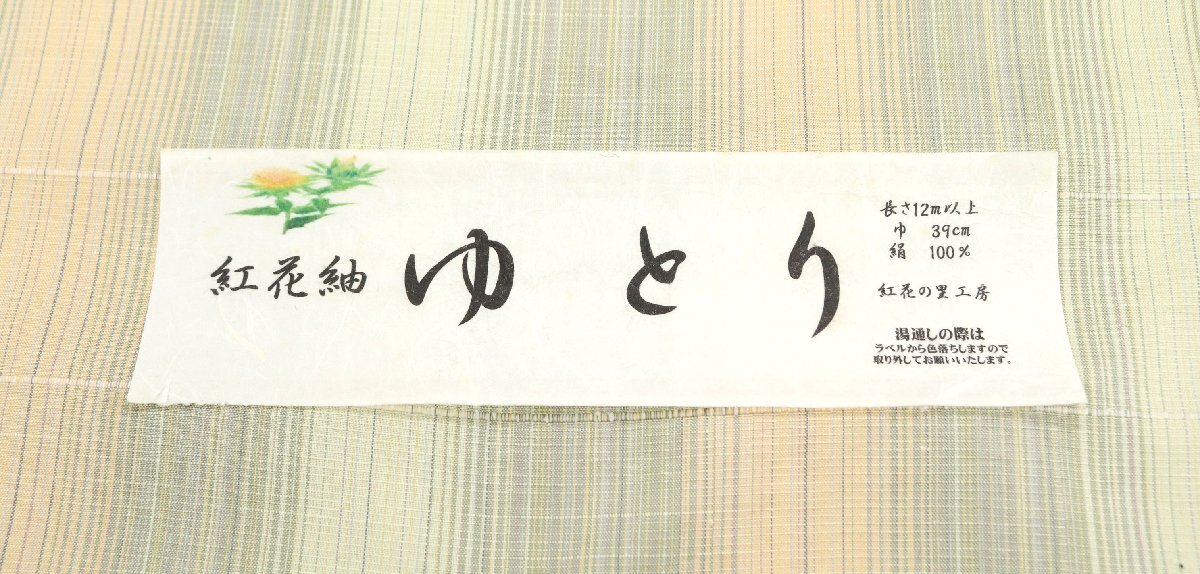 紅花紬 ゆとり
長さ12m以上
巾 39cm
絹 100%
紅花の里工房
湯通しの際は
ラベルから色落ちしますので
取り外してお願いいたします。